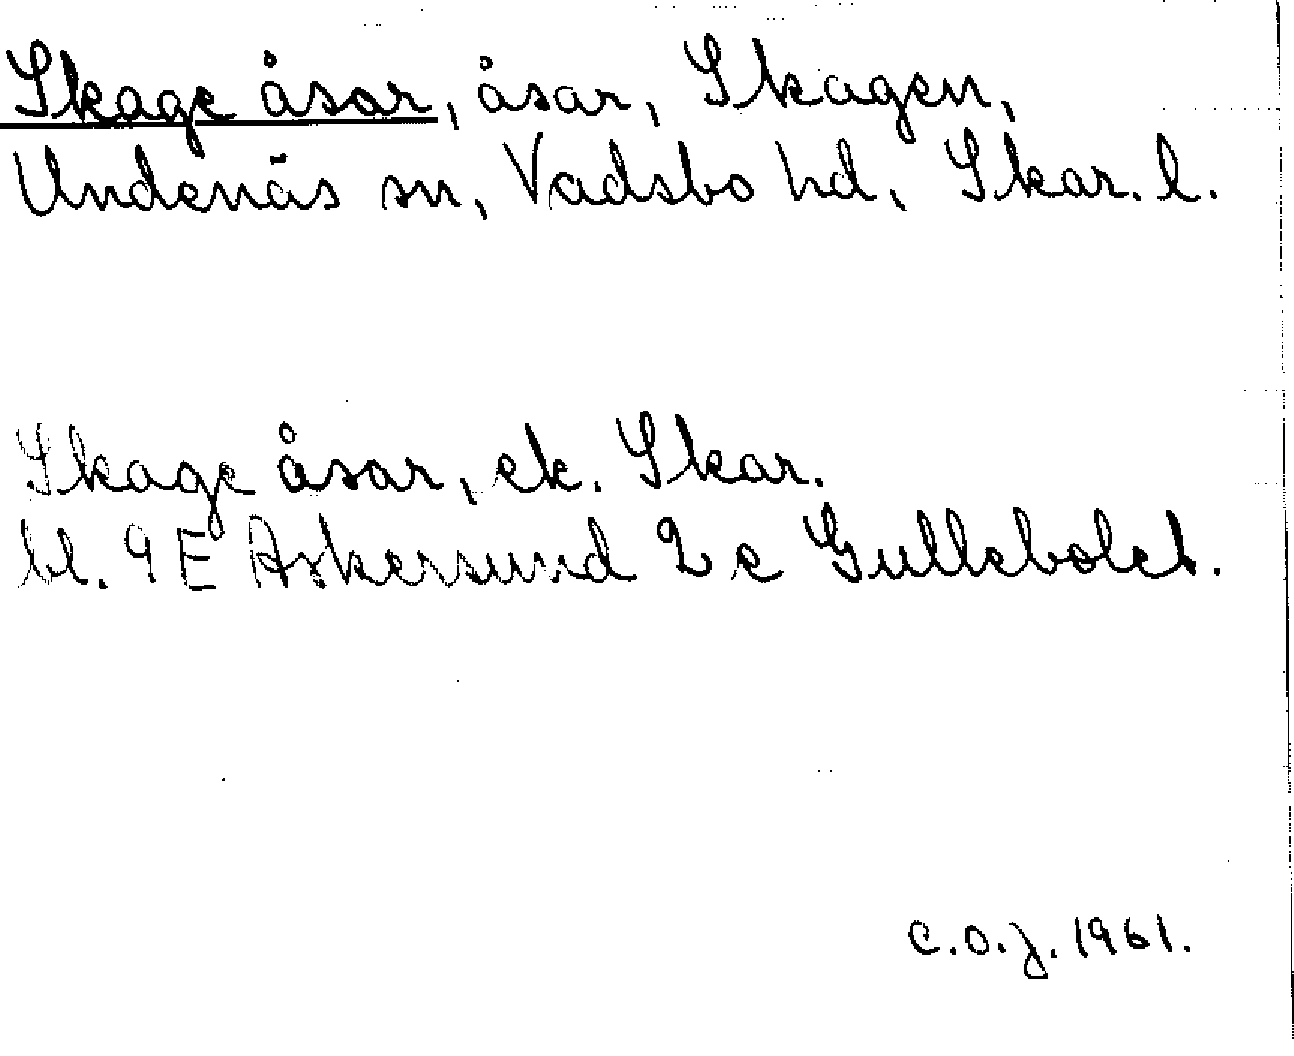 Skage åsar, åsar, Skagen,
Undenäs sn, Vadsbo hd, Skar. l.
Skage åsar, ek. Skar.
bl. 9 E Askersund 2 c Gullebolet.
C.O.J. 1961.